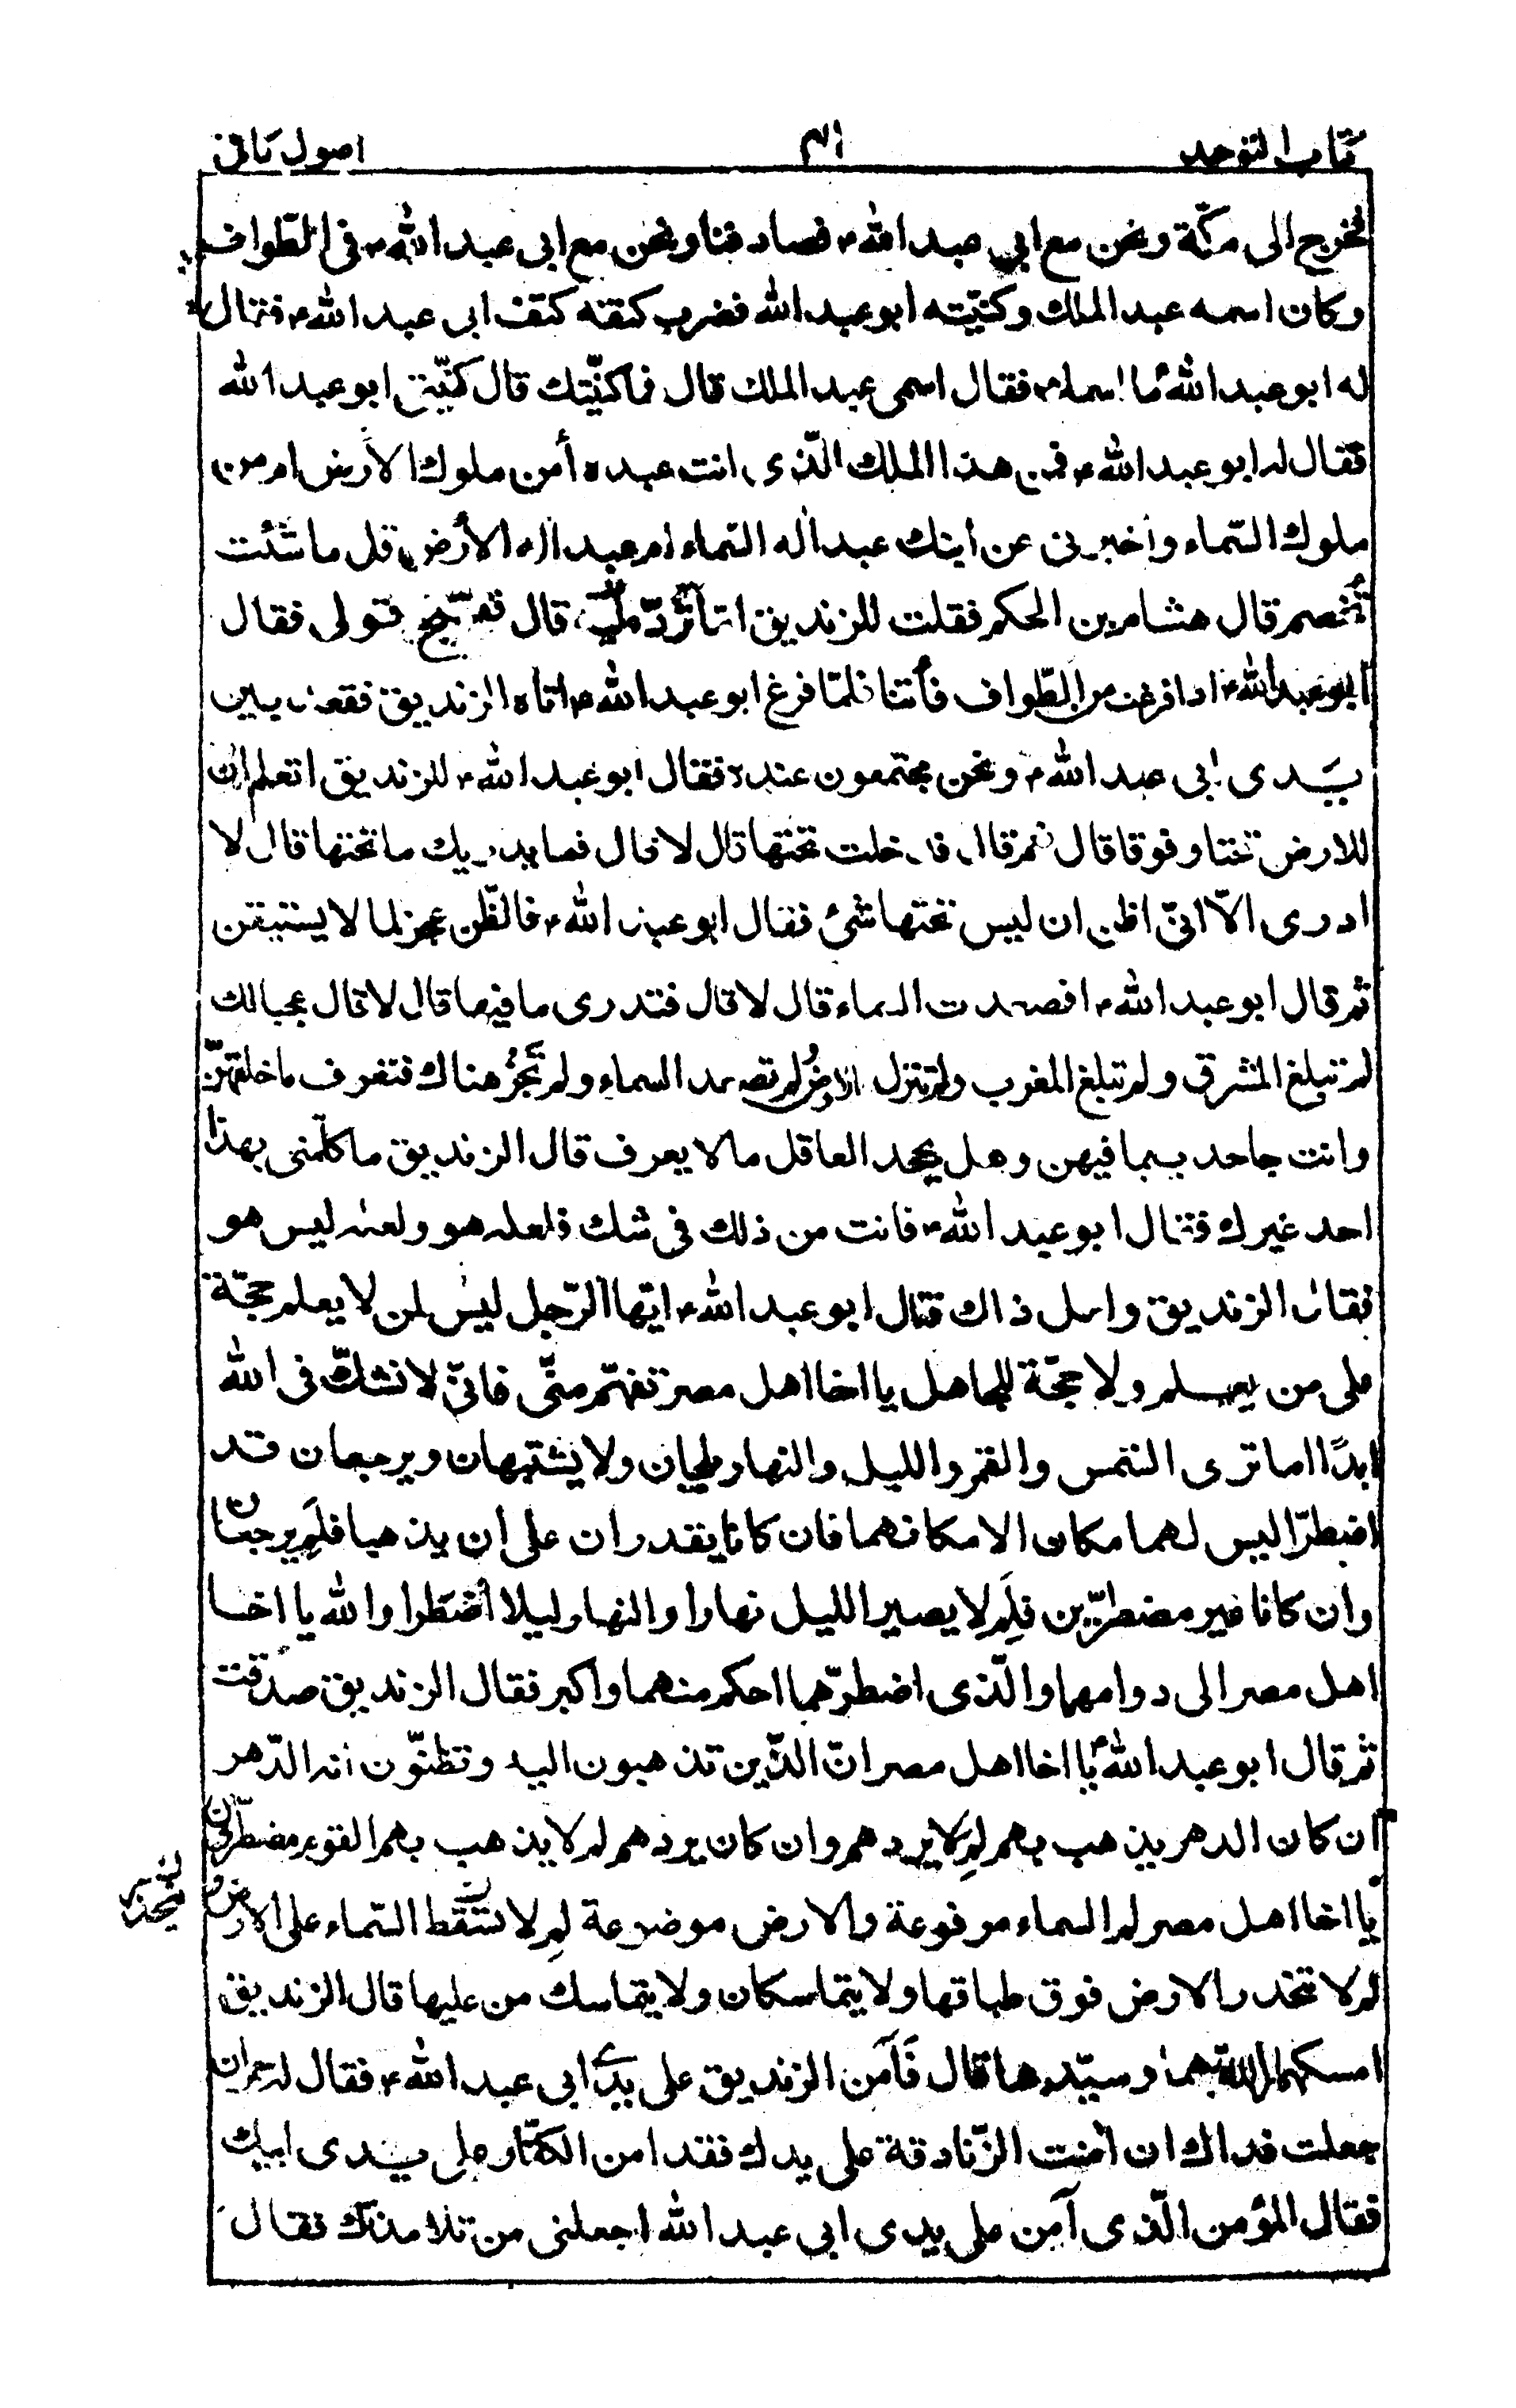 كتاب التوحيد ٤١ اصول كافى
فخرج الى مكّة ونحن مع ابي عبد اللهؑ فصادفنا ونحن مع ابى عبد اللهؑ فى الطّواف
وكان اسمه عبد الملك وكنيّته ابو عبد الله فضرب كتفه كتف ابى عبد اللهؑ فقال
له ابو عبد اللهؑ ما اسمك فقال اسمى عبد الملك قال فما كنيّتك قال كنيّتى ابو عبد الله
فقال له ابو عبد اللهؑ فمن هذا الملك الّذى انت عبده أمن ملوك الارض ام من
ملوك السّماء واخبرنى عن ابنك عبد اله السّماء ام عبد اله الأرض قل ما شئت
تخصم قال هشام بن الحكم فقلت للزنديق اما تردّ عليه قال فقبّح قولى فقال
ابو عبد اللهؑ اذا فرغت من الطّواف فأتنا فلمّا فرغ ابو عبد اللهؑ اتاه الزنديق فقعد بين
يدى ابى عبد اللهؑ ونحن مجتمعون عنده فقال ابو عبد اللهؑ للزنديق اتعلم ان
للارض تحتا وفوقا قال نعم قال فدخلت تحتها قال لا قال فما يدريك ما تحتها قال لا
ادرى الّا انّى اظن ان ليس تحتها شئ فقال ابو عبد اللهؑ فالظّن عجز لما لا يستيقن
ثم قال ابو عبد اللهؑ افصعدت السماء قال لا قال فتدرى ما فيها قال لا قال عجبا لك
لم تبلغ المشرق ولم تبلغ المغرب ولم تنزل الارض ولم تصعد السماء ولم تَجُزْ هناك فتعرف ما خلفهنّ
وانت جاحد بما فيهن وهل يجحد العاقل ما لا يعرف قال الزنديق ما كلّمنى بهذا
احد غيرك فقال ابو عبد اللهؑ فانت من ذلك فى شك فلعله هو ولعله ليس هو
فقال الزنديق ولعل ذاك فقال ابو عبد اللهؑ ايّها الرّجل ليس لمن لا يعلم حجّة
على من يعلم ولا حجّة للجاهل يا اخا اهل مصر تفهّم منّى فانّا لا نشكّ فى الله
ابدًا اما ترى الشمس والقمر والليل والنهار يلجان ولا يشتبهان ويرجعان قد
اضطرّا ليس لهما مكان الا مكانهما فان كانا يقدران على ان يذهبا فلِمَ يرجعان
وان كانا غير مضطرّين فلِمَ لا يصير الليل نهارا والنهار ليلا اُضطرا والله يا اخا
اهل مصر الى دوامهما والّذى اضطرّهما احكم منهما واكبر فقال الزنديق صدقت
ثم قال ابو عبد اللهؑ يا اخا اهل مصر انّ الذّين تذهبون اليه وتظنّون انه الدّهر
ان كان الدهر يذهب بهم لِمَ لا يردهم وان كان يردهم لم لا يذهب بهم القوم مضطرّون
يا اخا اهل مصر لم السماء مرفوعة والارض موضوعة لِمَ لا تسقط السّماء على الارض و
لم لا تنحدر الارض فوق طباقها ولا يتماسكان ولا يتماسك من عليها قال الزنديق
امسكهما الله ربّهما وسيّدهما قال فَآمن الزنديق على يدى ابى عبد اللهؑ فقال له حمران
جعلت فداك ان اٰمنت الزّنادقة على يدك فقد امن الكفّار على يدى ابيك
فقال المؤمن الّذى آمن على يدى ابى عبد الله اجعلنى من تلامذتك فقال